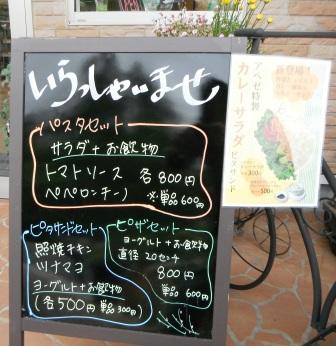 いらっしゃいませ
パスタセット
サラダ+お飲物
トマトソース 各800円
ペペロンチーノ ※単品600円
ピタサンドセット
照焼チキン
ツナマヨ
ヨーグルト+お飲物
(各500円 単品300円)
ピザセット
ヨーグルト+お飲物
直径20センチ
800円
単品600円
新登場!
アペゼ特製
カレーサラダ
ピタサンド
300円
500円